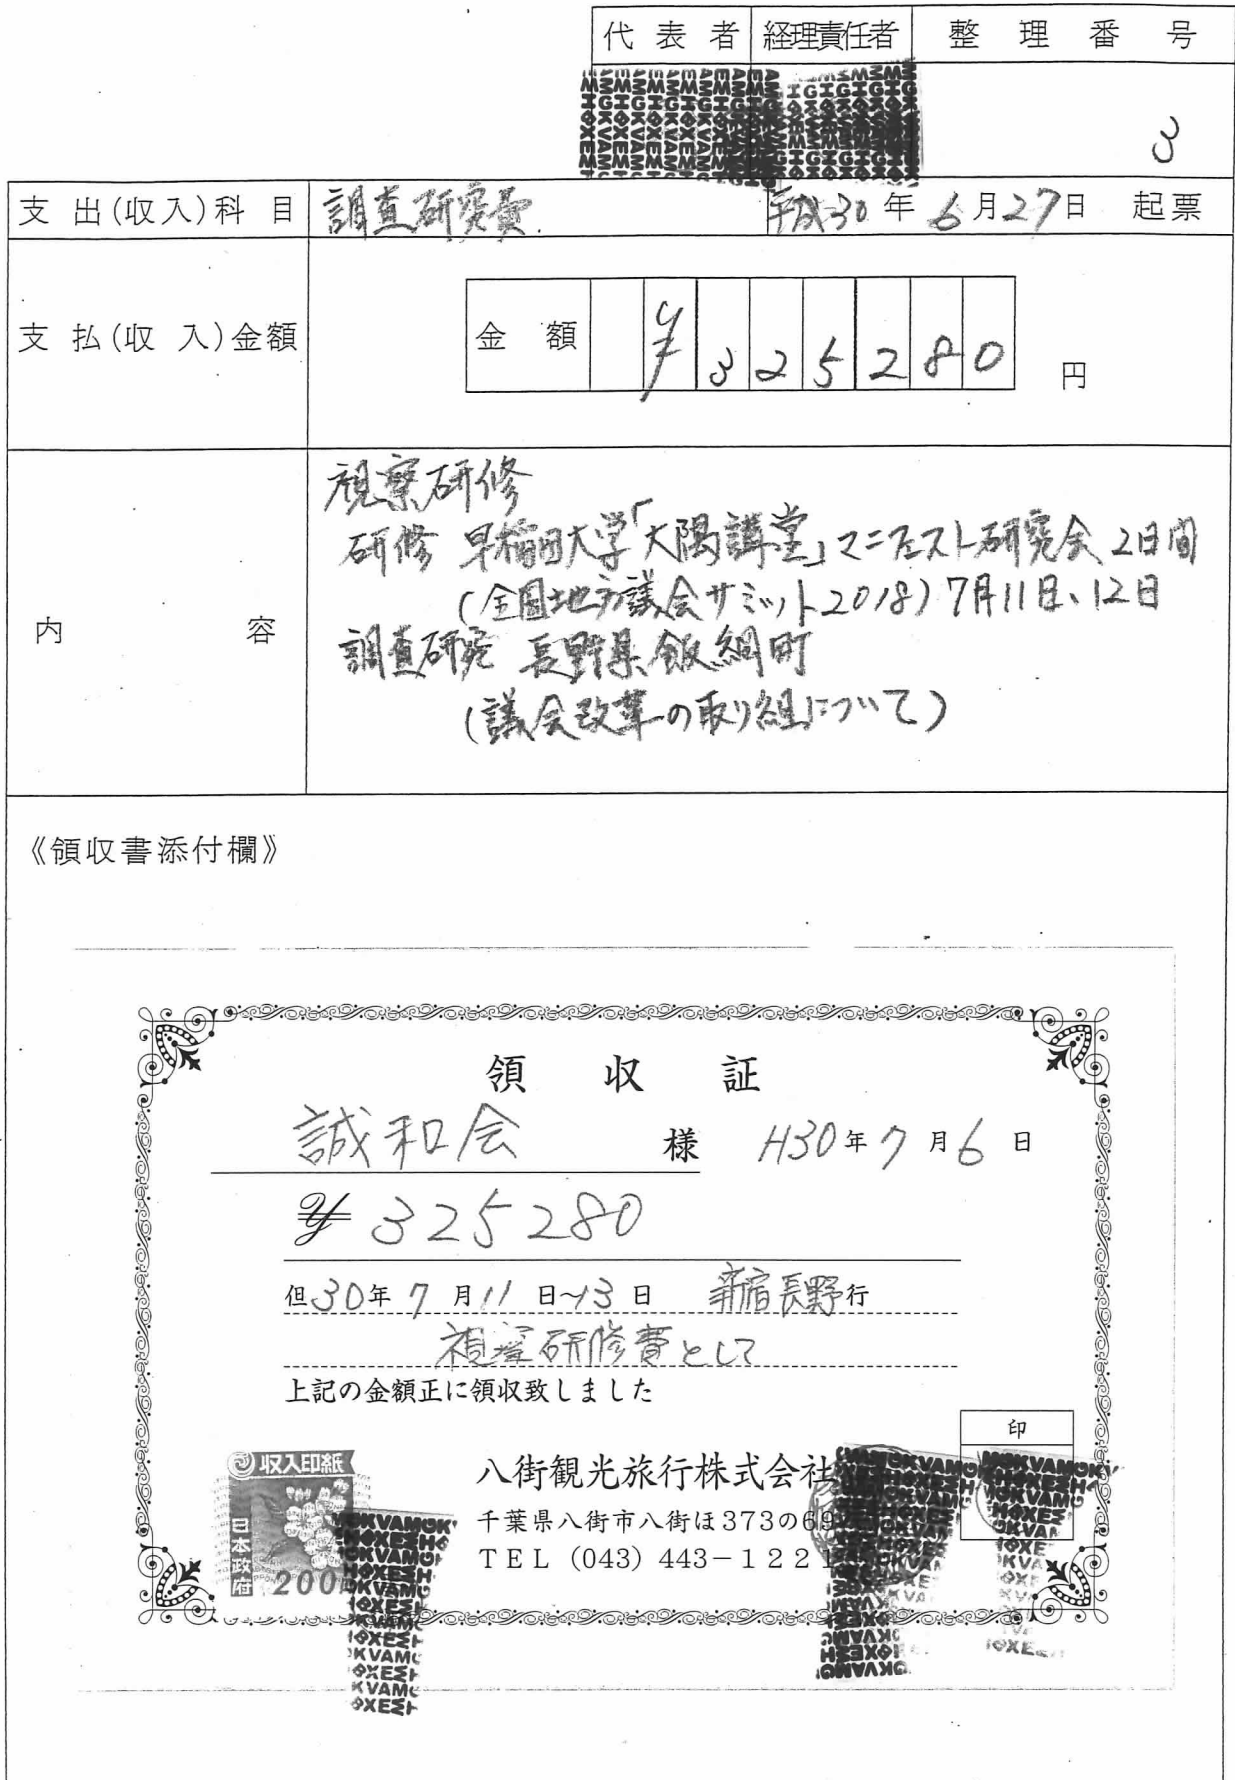 代表者 経理責任者 整理番号
3
支出(収入)科目 調査研究費 平成30年6月27日 起票
支払(収入)金額 金額 ¥325280 円
視察研修
研修 早稲田大学「大隅講堂」マニフェスト研究会 2日間
(全国地方議会サミット2018) 7月11日、12日
内容
調査研究 長野県飯綱町
(議会改革の取り組について)
《領収書添付欄》
領収証
誠和会 様 H30年7月6日
¥325280
但30年7月11日~13日 新宿長野行
視察研修費として
上記の金額正に領収致しました
印
収入印紙
日本政府
200
八街観光旅行株式会社
千葉県八街市八街ほ373の69
TEL (043) 443-1221